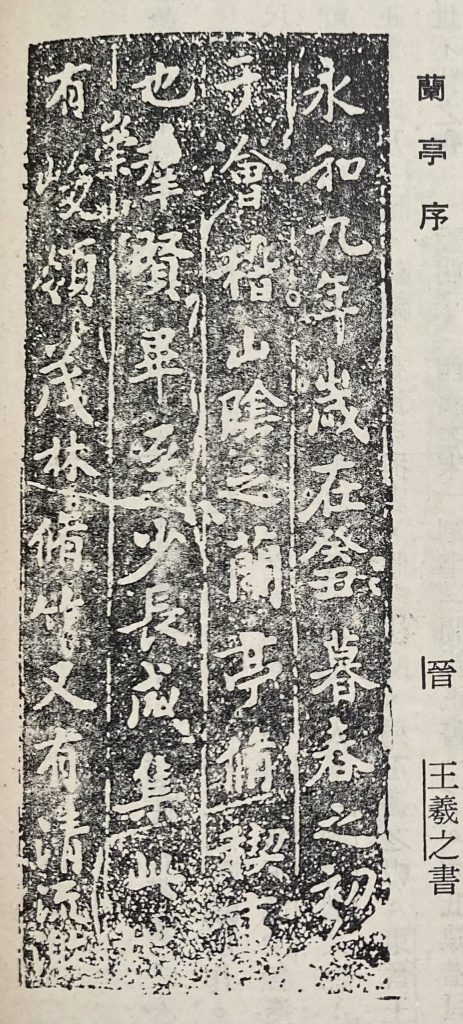 蘭亭序
晉 王羲之書
永和九年歲在癸丑暮春之初
于會稽山陰之蘭亭脩禊事
也羣賢畢至少長咸集此
有崇山峻領茂林脩竹又有清流